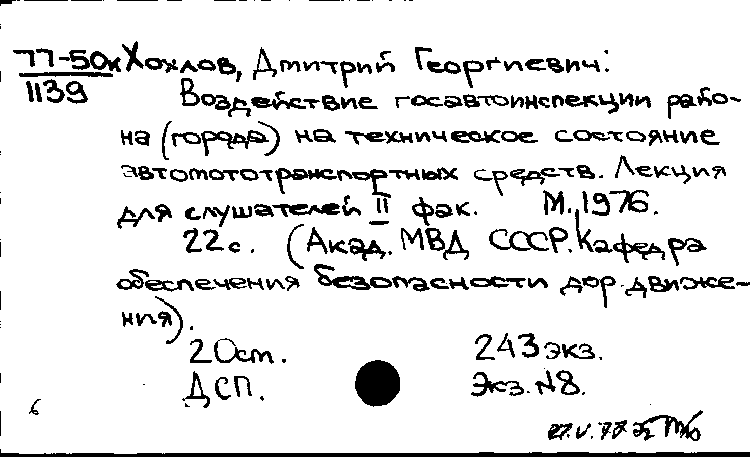 77-50к Хохлов, Дмитрий Георгиевич:
1139 Воздействие госавтоинспекции райо-
на (города) на техническое состояние
автомототранспортных средств. Лекция
для слушателей II фак. М., 1976.
22 с. (Акад. МВД СССР. Кафедра
обеспечения безопасности дор. движе-
ния).
20 ст. 243 экз.
ДСП. Экз. №8.
6
27.V.77